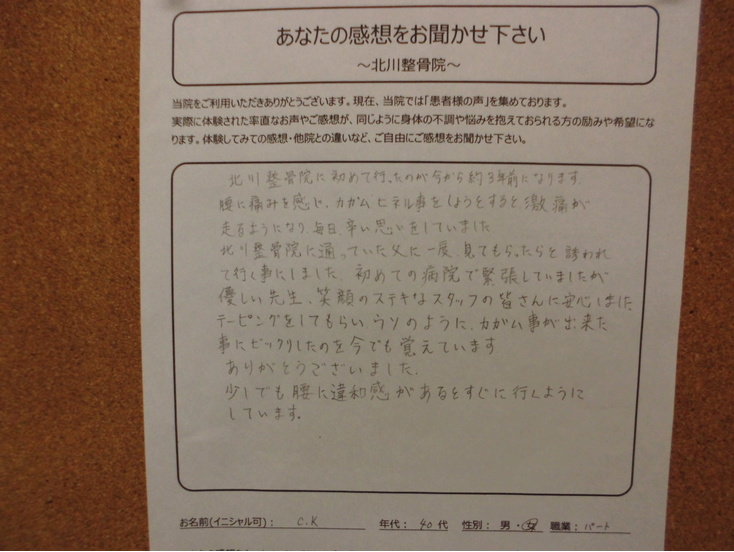 あなたの感想をお聞かせ下さい
～北川整骨院～
当院をご利用いただきありがとうございます。現在、当院では「患者様の声」を集めております。
実際に体験された率直なお声やご感想が、同じように身体の不調や悩みを抱えておられる方の励みや希望にな
ります。体験してみての感想・他院との違いなど、ご自由にご感想をお聞かせ下さい。
北川整骨院に初めて行ったのが今から約3年前になります.
腰に痛みを感じ、カガム ヒネル事をしようとすると激痛が
走るようになり毎日、辛い思いをしていました
北川整骨院に通っていた父に一度、見てもらったらと誘われ
て行く事にしました. 初めての病院で緊張していましたが
優しい先生、笑顔のステキなスタッフの皆さんに安心しました
テーピングをしてもらい ウソのように、カガム事が出来た
事にビックリしたのを今でも覚えています
ありがとうございました.
少しでも腰に違和感があるとすぐに行くように
しています。
お名前(イニシャル可)： C.K 年代： 40代 性別： 男・女 職業： パート